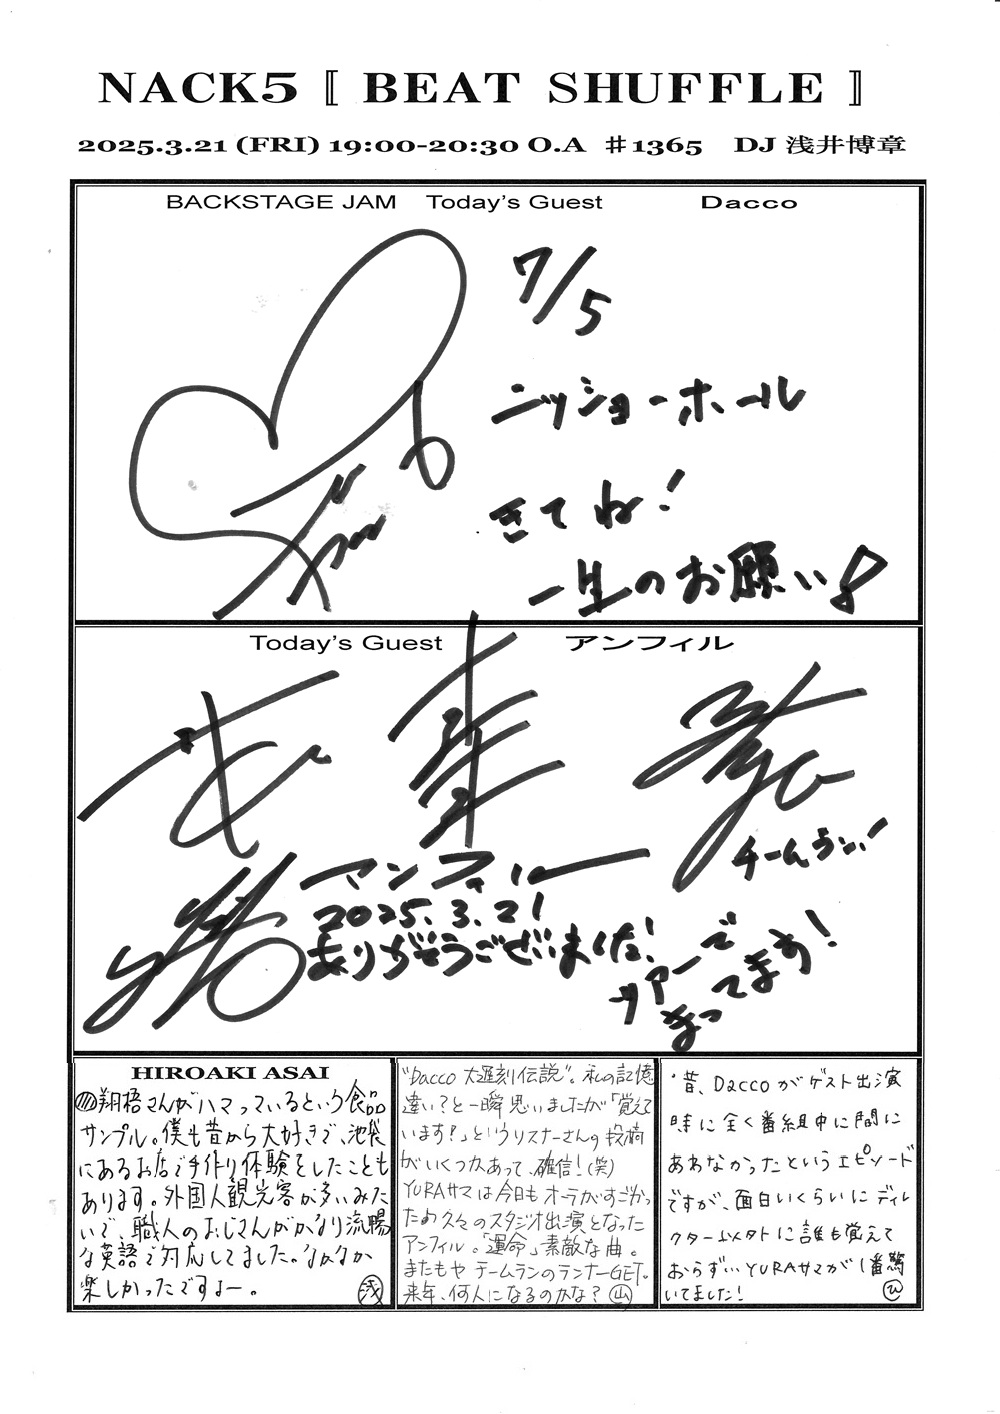 NACK5『 BEAT SHUFFLE 』
2025.3.21 (FRI) 19:00-20:30 O.A ＃1365 DJ 浅井博章
BACKSTAGE JAM Today's Guest Dacco
7/5
ニッショーホール
きてね!
一生のお願い!
Today's Guest アンフィル
アンフィル
2025.3.21
ありがとうございました!
チームラン!
ツアーで
まってます!
HIROAKI ASAI
翔梧さんがハマっているという食品
サンプル。僕も昔から大好きで、池袋
にあるお店で手作り体験をしたことも
あります。外国人観光客が多いみた
いで、職人のおじさんがかなり流暢
な英語で対応してました。なかなか
楽しかったですよー。 浅
"Dacco 大遅刻伝説"。私の記憶
違い?と一瞬思いましたが「覚えて
います!」というリスナーさんの投稿
がいくつかあって、確信!(笑)
YURAサマは今日もオーラがすごかっ
た 久々のスタジオ出演となった
アンフィル。「運命」素敵な曲。
またもや チームランのランナーGET。
来年、何人になるのかな? 山
・昔、Daccoがゲスト出演
時に全く番組中に間に
あわなかったというエピソード
ですが、面白いくらいにディレ
クター以外に誰も覚えて
おらず、YURAサマが1番驚
いてました! ひ